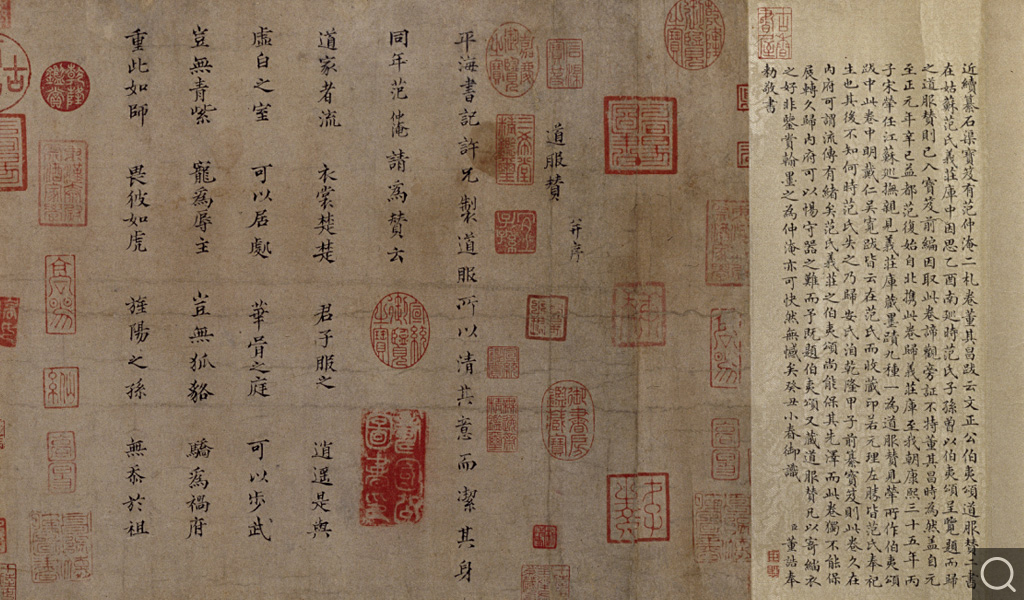 近續纂石渠寶笈有范仲淹二札卷董其昌跋云文正公伯夷頌道服贊二書
在姑蘇范氏義莊庫中因思乙酉南廵時范氏子孫曾以伯夷頌呈覽題而歸
之道服贊則已入寶笈前編因取此卷諦觀旁証不特董其昌時為然盖自元
至正元年辛巳益都范復始自北攜此卷歸義莊庫至我朝康熙三十五年丙
子宋犖任江蘇廵撫親見義莊庫藏墨蹟九種一為道服贊見犖所作伯夷頌
跋中此卷中明戴仁吳寬跋皆云在范氏而收藏印若元理左肢皆范氏奉祀
生也其後不知何時范氏失之乃歸安氏洎乾隆甲子前纂寶笈則此卷久在
內府可謂流傳有緒矣范氏義莊之伯夷頌尚能保其先澤而此卷獨不能保
展轉久歸內府可以惕守器之難而予既題伯夷頌又藏道服贊凡以寄緇衣
之好非鑒賞翰墨之為仲淹亦可快然無憾矣癸丑小春御識 臣董誥奉
勅敬書
道服贊 并序
平海書記許兄製道服所以清其意而潔其身
同年范仲淹請為贊云
道家者流 衣裳楚楚 君子服之 逍遥是與
虛白之室 可以居處 華胥之庭 可以步武
豈無青紫 寵為辱主 豈無狐貉 驕為禍府
重此如師 畏彼如虎 旌陽之孫 無忝於祖